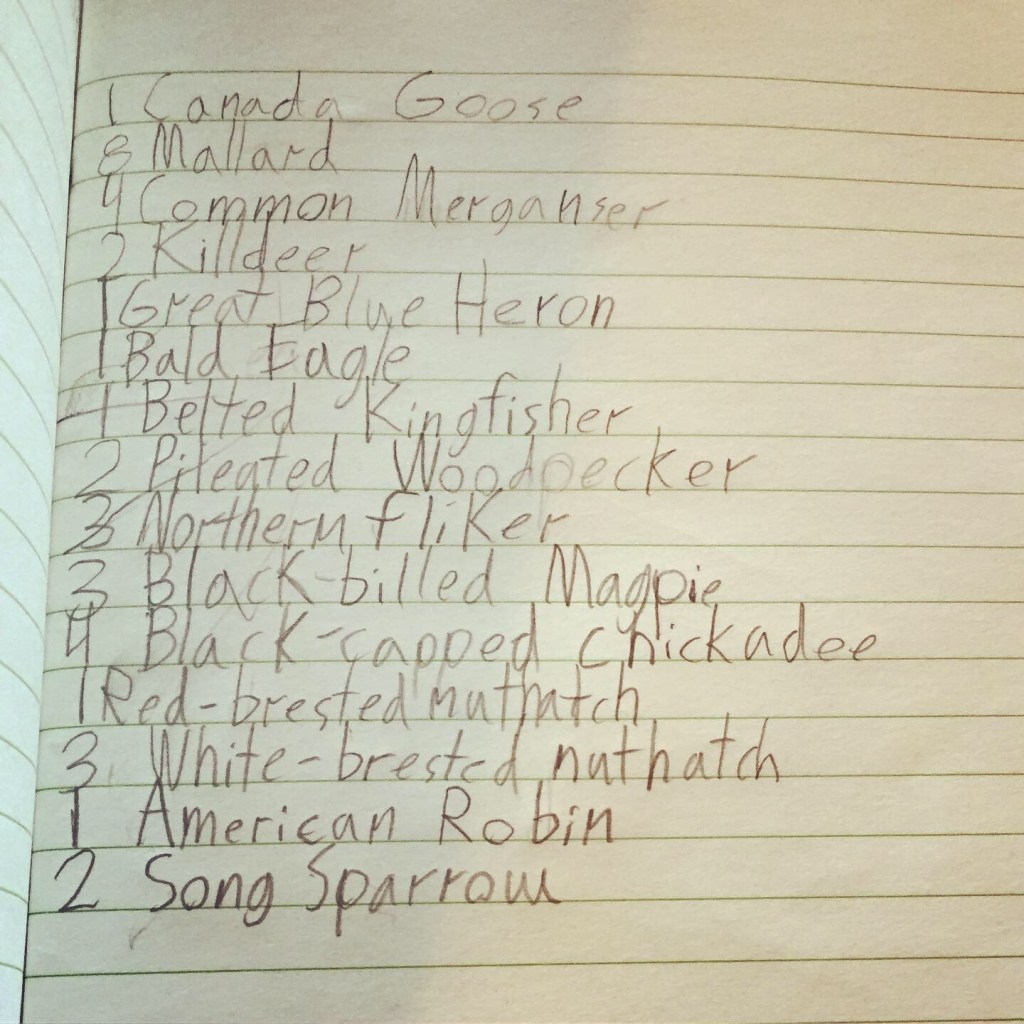 1 Canada Goose
8 Mallard
4 Common Merganser
2 Killdeer
1 Great Blue Heron
1 Bald Eagle
1 Belted Kingfisher
2 Pileated Woodpecker
3 Northern fliker
3 Black-billed Magpie
4 Black-capped chickadee
1 Red-brested nuthatch
3 White-brested nuthatch
1 American Robin
2 Song Sparrow